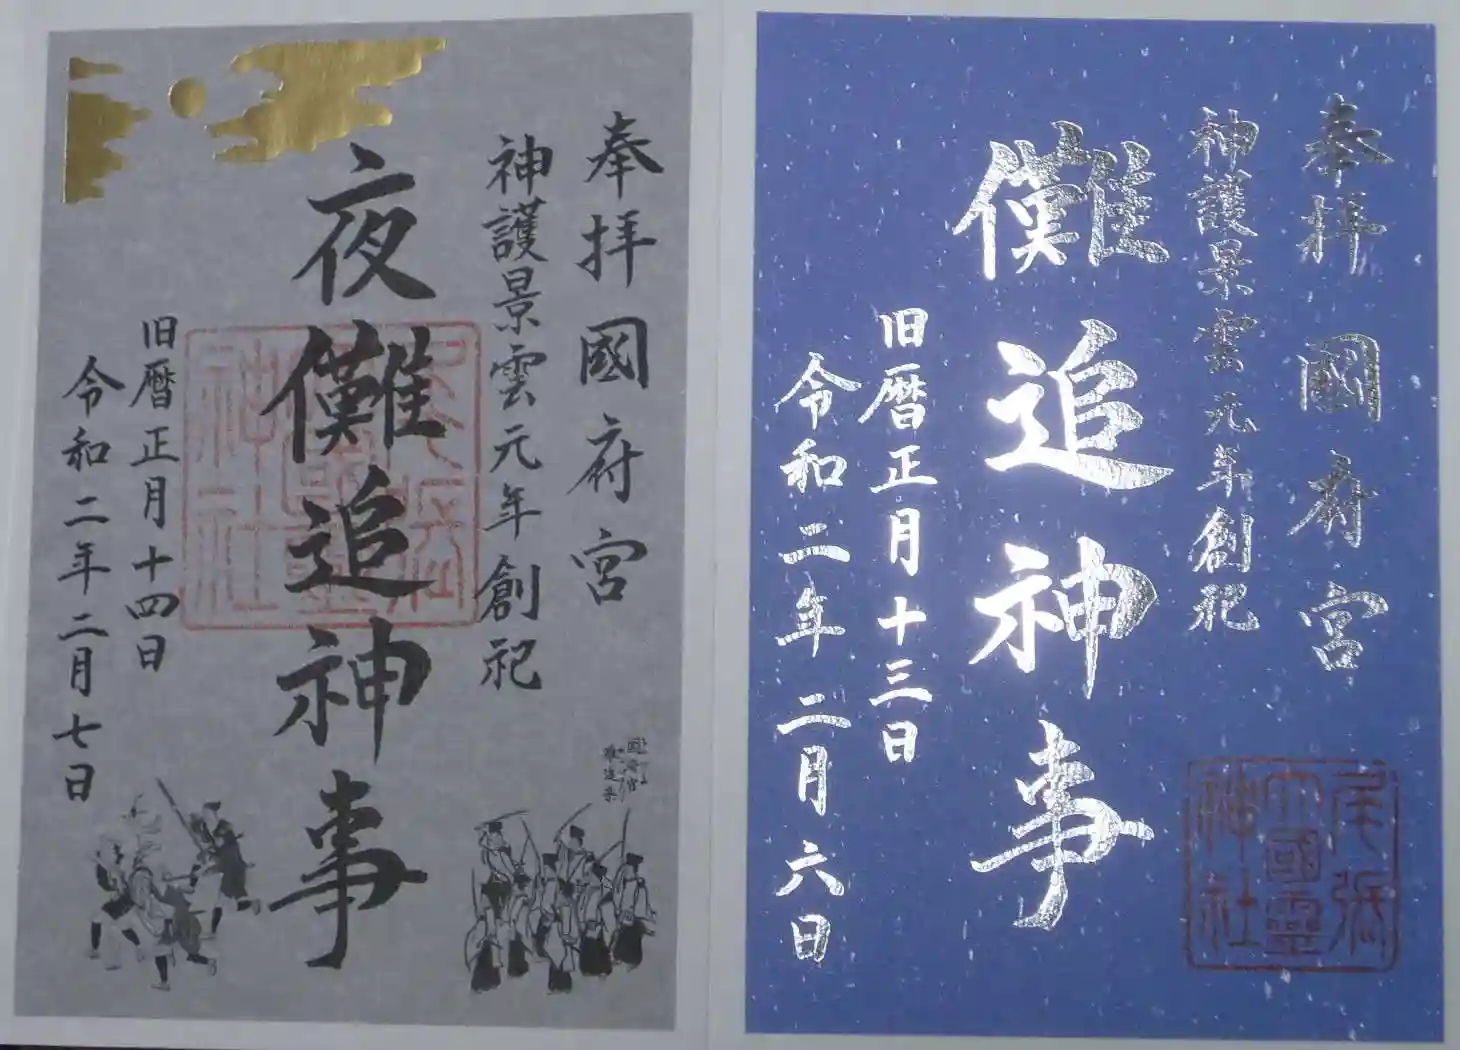 奉拝 國府宮
神護景雲元年創祀
儺追神事
旧暦正月十三日
令和二年二月六日
尾張大國霊神社
奉拝 國府宮
神護景雲元年創祀
夜儺追神事
旧暦正月十四日
令和二年二月七日
尾張大國霊神社